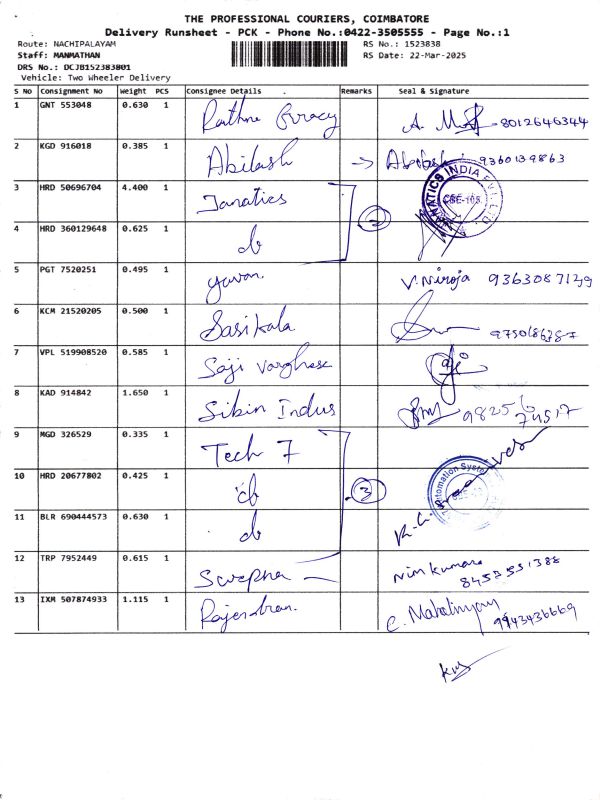 THE PROFESSIONAL COURIERS, COIMBATORE
Delivery Runsheet - PCK - Phone No.:0422-3505555 - Page No.:1
Route: NACHIPALAYAM RS No.: 1523838
Staff: MANMATHAN RS Date: 22-Mar-2025
DRS No.: DCJB152383801
Vehicle: Two Wheeler Delivery
S No Consignment No Weight PCS Consignee Details Remarks Seal & Signature
1 GNT 553048 0.630 1 A. 8012646344
2 KGD 916018 0.385 1 Abilash → Abilash 9360139863
3 HRD 50696704 4.400 1 Janatics 2 JANATICS INDIA PVT. LTD CBE-103
4 HRD 360129648 0.625 1 do
5 PGT 7520251 0.495 1 yuvan. V. Niroja 9363087129
6 KCM 21520205 0.500 1 Sasikala
7 VPL 519908520 0.585 1 Saji Varghese Saji
8 KAD 914842 1.650 1 Sibin Indus 98256 74517
9 MGD 326529 0.335 1 Tech 7 3 Automation Systems
10 HRD 20677802 0.425 1 do
11 BLR 690444573 0.630 1 do
12 TRP 7952449 0.615 1 Swepna Nim kumar 8453551388
13 IXM 507874933 1.115 1 Rajendran. C. Mahalingam 9943436669